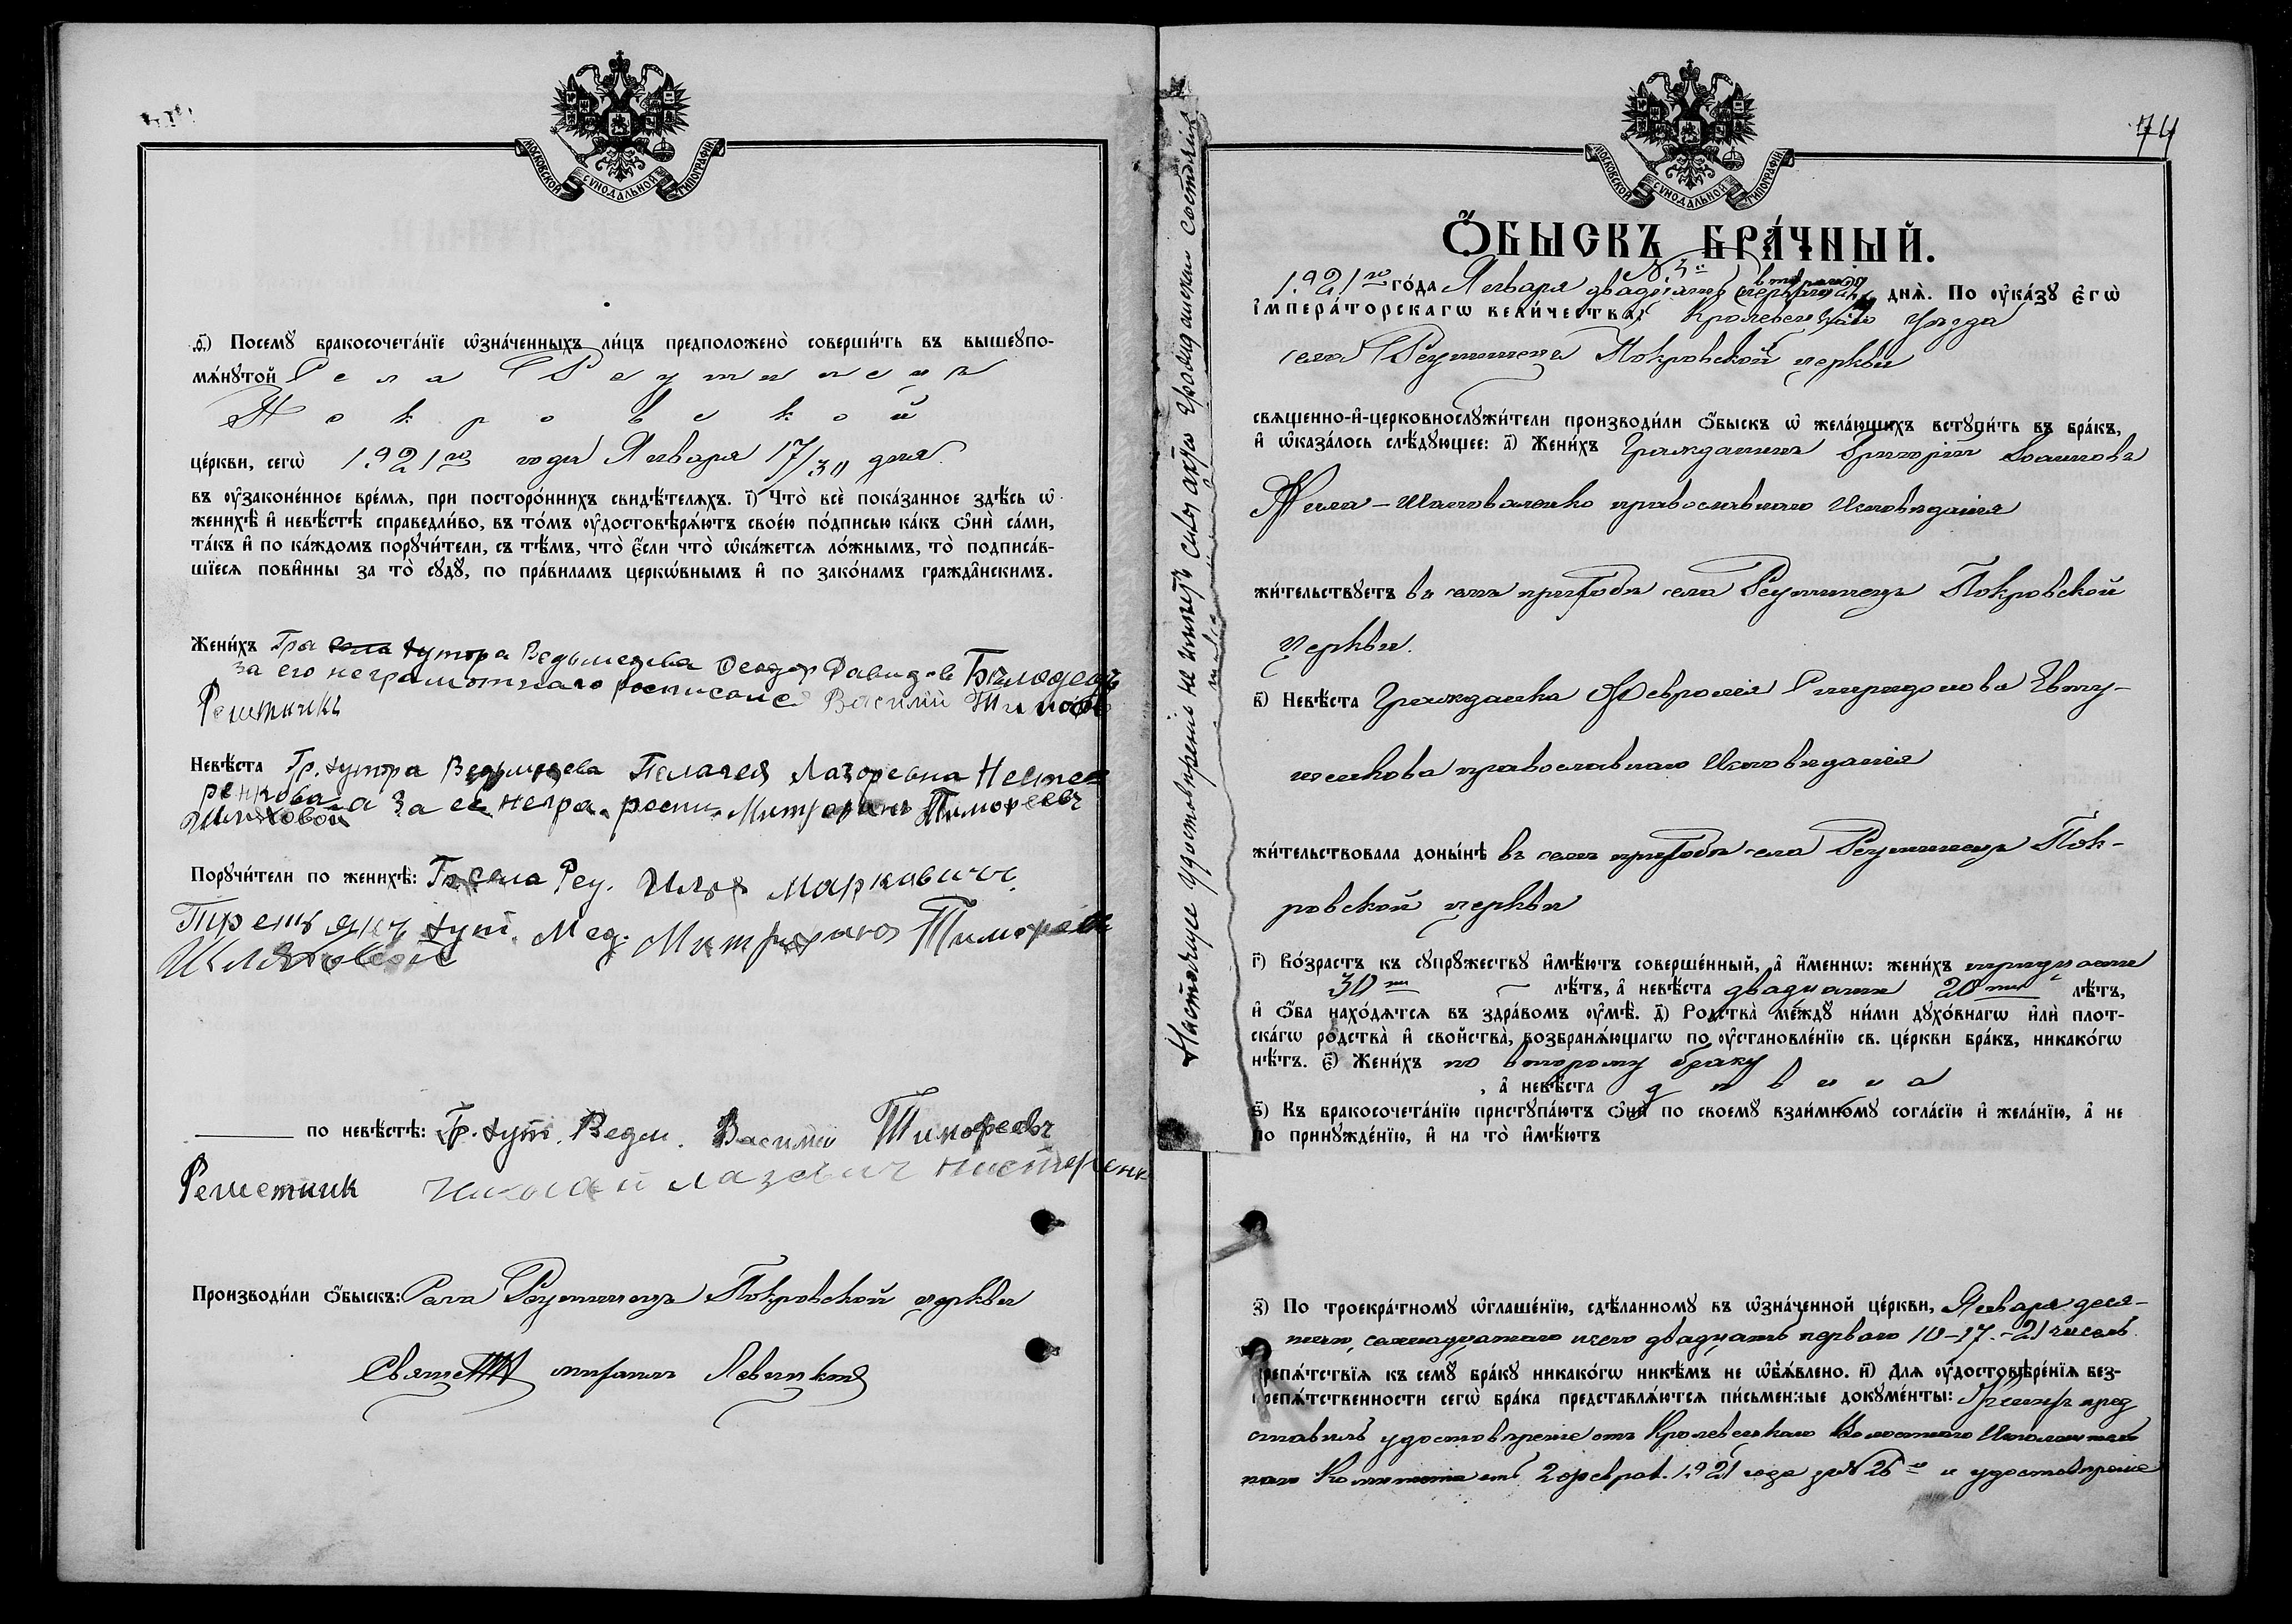 МОСКОВСКОЙ СѴНОДАЛЬНОЙ ТИПОГРАФІИ.
ѳ҃) Посемꙋ̀ бракосочета́нїе ѡ҆зна́ченныхъ ли́цъ предположено̀ соверши́ть въ вышеꙋпо-
мѧ́нꙋтой Села Реутинецъ
Покровской
це́ркви, сегѡ̀ 1921го года Января 17/30 дня.
въ ᲂу҆законе́нное вре́мѧ, при посторо́ннихъ свидѣ́телѧхъ. і҃) Что̀ всѐ пока́занное здѣ́сь ѡ҆
женихѣ̀ и҆ невѣ́стѣ справедли́во, въ то́мъ ᲂу҆достовѣрѧ́ютъ свое́ю по́дписью ка́къ ѻ҆нѝ са́ми,
та́къ и҆ по ка́ждомъ порꙋчи́тели, съ тѣ́мъ, что̀ є҆́сли что̀ ѡ҆ка́жетсѧ ло́жнымъ, то̀ подписа́в-
шїесѧ пови́нны за то̀ сꙋдꙋ̀, по пра́виламъ церкѡ́внымъ и҆ по зако́намъ гражда́нскимъ.
Жени́хъ Гра хутора Ведьмедева Феодор Давидов
за его неграмотнаго росписалсе Василий Тимоф
Решетникъ
Невѣ́ста Гр. хутора Ведьмедева Пелагея Лазоревна Несте
ренкова а За ее негра. роспи. Митрофанъ Тимофеевъ
Шляховой
Порꙋчи́тели по женихѣ̀: Гр села Реу. Илья Маркович
хут. Мед. Митрофанъ Тимофеев
Шляховой
по невѣ́стѣ: Гр. хут. Ведм. Василий Тимофеевъ
Решетник Николай Лазович Нистеренк
Производи́ли ѻ҆́быскъ: Села Реутинецъ Покровской церкви
Священ Митрофанъ Левицкій
74
Настоящее удостовѣреніе не имѣетъ силы акта гражданскаго состоянія
МОСКОВСКОЙ СѴНОДАЛЬНОЙ ТИПОГРАФІИ.
Ѻ҆́БЫСКЪ БРА́ЧНЫЙ.
№ 3й
1921го го́да Января двадцать второго днѧ̀. По ᲂу҆ка́зꙋ є҆гѡ̀
і҆мпера́торскагѡ вели́чества, Кролевецкаго Уѣзда
села Реутинецъ Покровской церкви
свѧщенно-и҆-церковнослꙋжи́тели производи́ли ѻ҆́быскъ ѡ҆ жела́ющихъ встꙋпи́ть въ бра́къ,
и҆ ѡ҆каза́лось слѣ́дꙋющее: а҃) Жени́хъ Гражданинъ Григорій Іоанновъ
Шаповаленко православнаго Исповѣданія
жи́тельствꙋетъ въ семъ приходѣ села Реутинецъ Покровской
церкви.
в҃) Невѣ́ста Гражданка Февронія Спиридонова Евту-
шенкова православнаго Исповѣданія
жи́тельствовала доны́нѣ въ семъ приходѣ села Реутинецъ Пок-
ровской церкви
г҃) Во́зрастъ къ сꙋпрꙋ́жествꙋ и҆мѣ́ютъ соверше́нный, а҆ и҆́меннѡ: жени́хъ тридцати
30ти лѣ́тъ, а҆ невѣ́ста двадцати 20ти лѣ́тъ,
и҆ ѻ҆́ба нахо́дѧтсѧ въ здра́вомъ ᲂу҆мѣ̀. д҃) Родства̀ ме́ждꙋ ни́ми дꙋхо́внагѡ и҆лѝ плот-
ска́гѡ родства̀ и҆ свойства̀, возбранѧ́ющагѡ по ᲂу҆становле́нїю св. це́ркви бра́къ, никако́гѡ
нѣ́тъ. є҃) Жени́хъ по второму браку
, а҆ невѣ́ста дѣвица
ѕ҃) Къ бракосочета́нїю пристꙋпа́ютъ ѻ҆нѝ по своемꙋ̀ взаи́мномꙋ согла́сїю и҆ жела́нїю, а҆ не
по принꙋжде́нїю, и҆ на то̀ и҆мѣ́ютъ
з҃) По троекра́тномꙋ ѡ҆глаше́нїю, сдѣ́ланномꙋ въ ѡ҆зна́ченной це́ркви, Января деся-
таго, семнадцатаго и двадцать перваго 10–17–21 чиселъ.
препѧ́тствїѧ къ семꙋ̀ бра́кꙋ никако́гѡ никѣ́мъ не ѡ҆б̾ѧ́влено. и҃) Длѧ ᲂу҆достовѣре́нїѧ без-
препѧ́тственности сегѡ̀ бра́ка представлѧ́ютсѧ пи́сьменные докꙋме́нты: Женихъ пред
ставилъ удостовѣреніе отъ Кролевецкаго Волостнаго Исполнитель
наго Комитета отъ 2 феврал. 1921 года за № 26м и удостовѣреніе